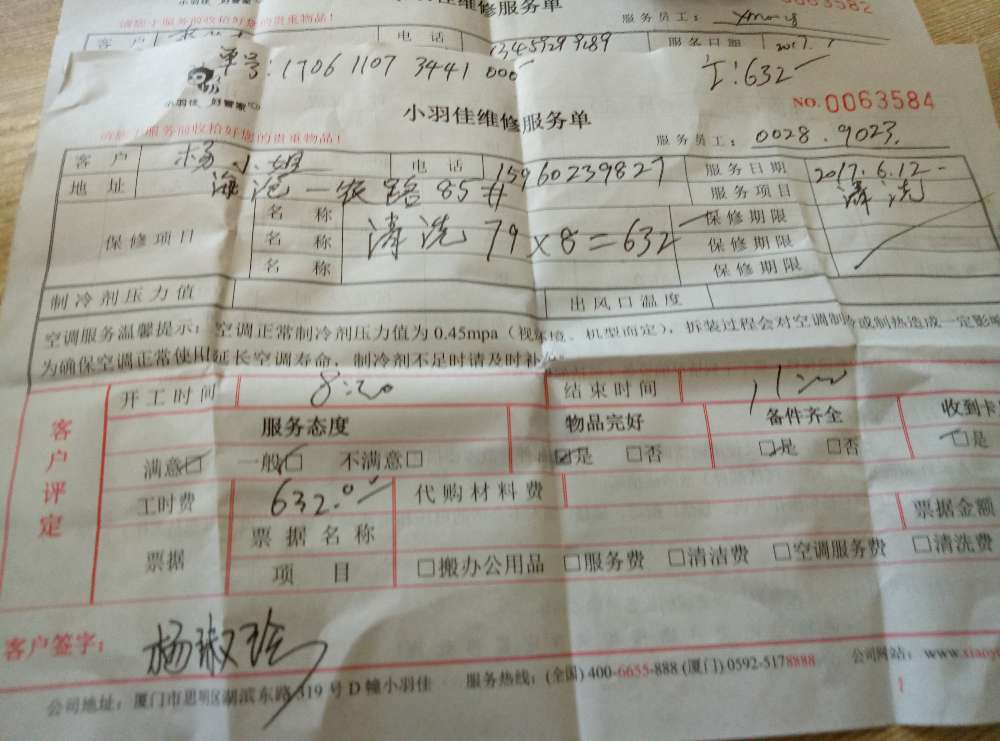 小羽佳维修服务单
0063582
请您于服务前收拾好您的贵重物品!
服务员工:
客 户 电 话 13459299289 服务日期 2017.
单号:1706 1107 3441 000
工:632
小羽佳 好管家
小羽佳维修服务单
NO.0063584
请您于服务前收拾好您的贵重物品!
服务员工: 0028.9023.
客 户 杨小姐 电 话 15960239827 服务日期 2017.6.12
地 址 海沧一农路85# 服务项目 清洗
保修项目 名 称 清洗 79×8=632 保修期限
名 称 保修期限
名 称 保修期限
制冷剂压力值 出风口温度
空调服务温馨提示: 空调正常制冷剂压力值为 0.45mpa (视环境、机型而定), 拆装过程会对空调制冷或制热造成一定影响
为确保空调正常使用延长空调寿命, 制冷剂不足时请及时补
客户评定
开工时间 8:20 结束时间 11:00
服务态度 物品完好 备件齐全 收到卡
满意□ 一般□ 不满意□ □是 □否 □是 □否 □是
工时费 632.00 代购材料费
票据 票据名称 票据金额
项 目 □搬办公用品 □服务费 □清洁费 □空调服务费 □清洗费
客户签字: 杨淑玲
公司地址: 厦门市思明区湖滨东路 319 号 D 幢小羽佳 服务热线: (全国) 400-6655-888 (厦门) 0592-5178888 公司网站: www.xiaoyu
1